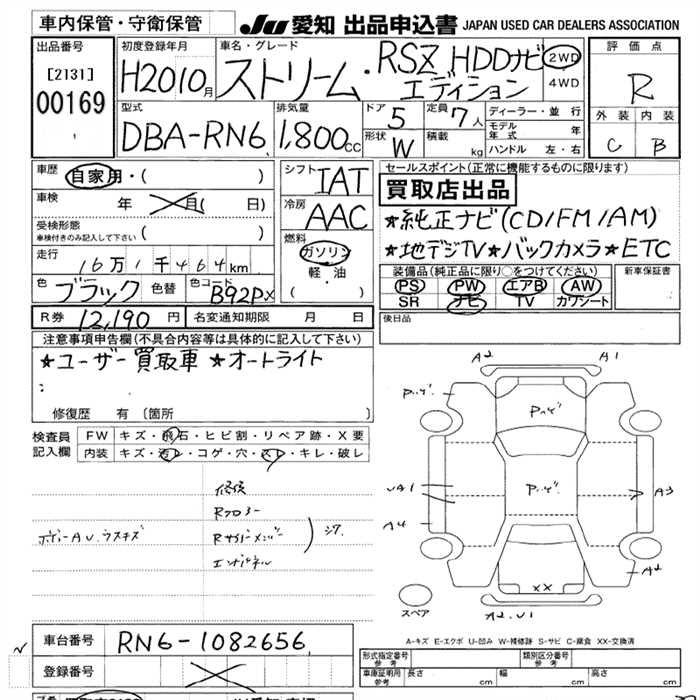 車内保管・守衛保管
JU 愛知 出品申込書 JAPAN USED CAR DEALERS ASSOCIATION
出品番号
[2131]
00169
初度登録年月
H2010月
車名・グレード
ストリーム・RSZ HDDナビ
エディション
2WD
4WD
評価点
R
外装 内装
C B
型式
DBA-RN6
排気量
1,800cc
ドア 5
形状 W
定員 7人
積載 kg
ディーラー・並行
モデル年式 年
ハンドル 左・右
車歴 自家用・( )
車検 年 月( 日)
受検形態
車検付きのみ記入して下さい ( )
走行
16万1千464km
色 ブラック 色替 色コード B92Px
シフト IAT
冷房 AAC
燃料
ガソリン
軽・油
( )
セールスポイント(正常に機能するものに限ります)
買取店出品
★純正ナビ(CD/FM/AM)
★地デジTV★バックカメラ★ETC
装備品(純正品に限り○をつけてください)
PS PW エアB AW
SR ナビ TV カワシート
新車保証書
後日品
R券 12,190円 名変通知期限 月 日
注意事項申告欄(不具合内容等は具体的に記入して下さい)
★ユーザー買取車 ★オートライト
:
修復歴 有〔箇所 〕
検査員
記入欄
FW キズ・飛石・ヒビ割・リペア跡・X要
内装 キズ・汚レ・コゲ・穴・スレ・キレ・破レ
修復
Rフロアー
Rサイドメンバー
エンドパネル
ボディーAU.ウスキズ
A2 A1
UA1
A4
A3
A2
XX
A2.U1
スペア
cm cm
cm cm
A-キズ E-エクボ U-凹み W-補修跡 S-サビ C-腐食 XX-交換済
車台番号 RN6-1082656
登録番号
形式指定番号
参考
類別区分番号
参考
車庫証明用
参考
長さ cm 幅 cm 高さ cm